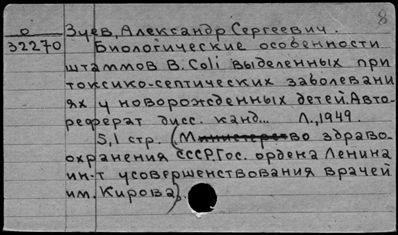 8
о Зуев, Александр Сергеевич.
32270 Биологические особенности
штаммов B. Coli выделенных при
токсико-септических заболевани
ях у новорожденных детей. Авто-
реферат дисс. канд... Л., 1949.
5,1 стр. (Министерство здраво-
охранения СССР. Гос. ордена Ленина
ин-т усовершенствования врачей
им. Кирова).